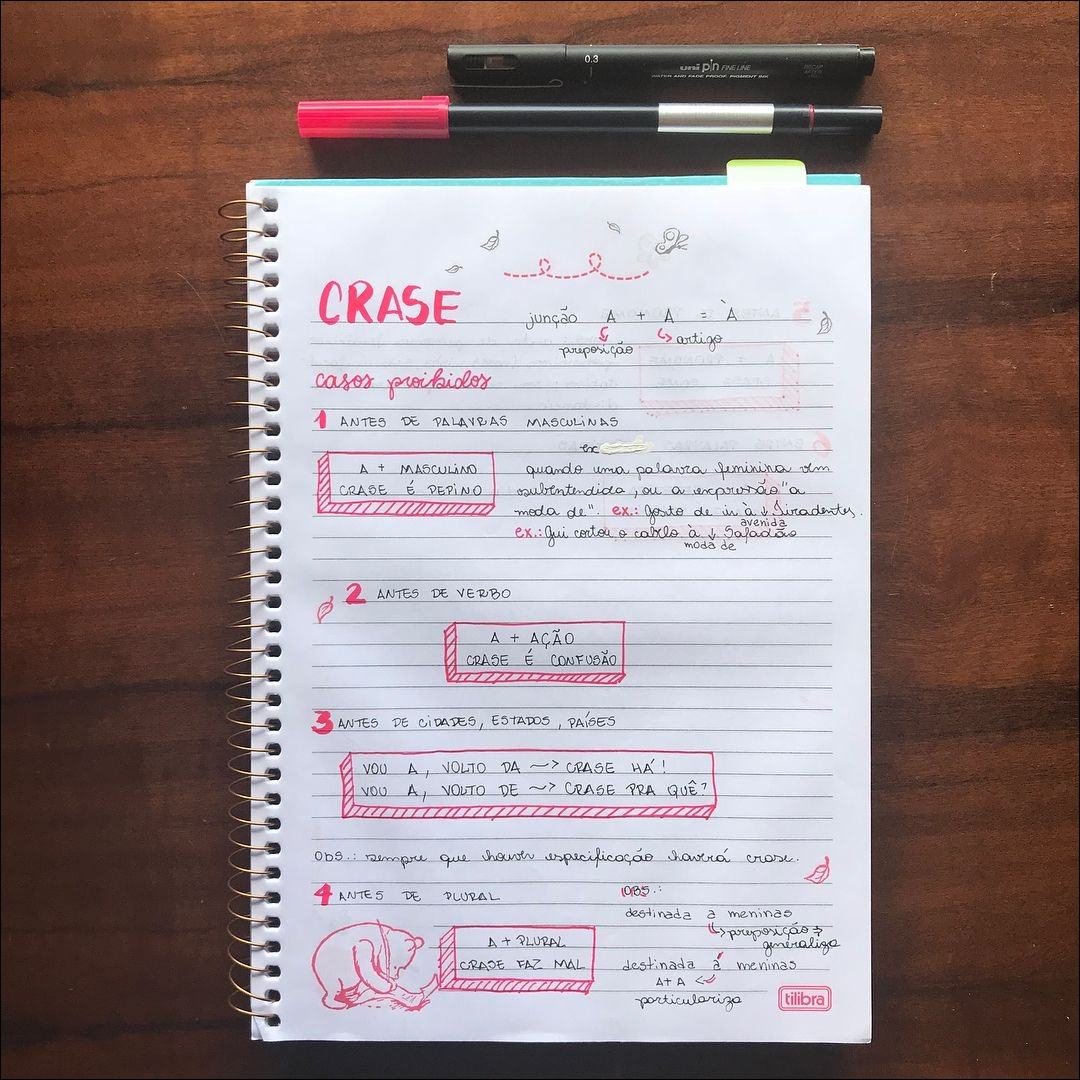 0.3
uni pin FINE LINE
WATER AND FADE PROOF, PIGMENT INK
CRASE
junção A + A = À
preposição
artigo
casos proibidos
1 ANTES DE PALAVRAS MASCULINAS
A + MASCULINO
CRASE É PEPINO
ex
quando uma palavra feminina vem
subentendida, ou a expressão "a
moda de". ex.: Gosto de ir à ↓ Tiradentes.
avenida
ex.: Gui cortou o cabelo à ↓ Safadão
moda de
2 ANTES DE VERBO
A + AÇÃO
CRASE É CONFUSÃO
3 ANTES DE CIDADES, ESTADOS, PAÍSES
VOU A, VOLTO DA ~> CRASE HÁ!
VOU A, VOLTO DE ~> CRASE PRA QUÊ?
OBS.: sempre que houver especificação haverá crase.
4 ANTES DE PLURAL
A + PLURAL
CRASE FAZ MAL
OBS.:
destinada a meninas
preposição →
generaliza
destinada à meninas
A + A
particulariza
tilibra